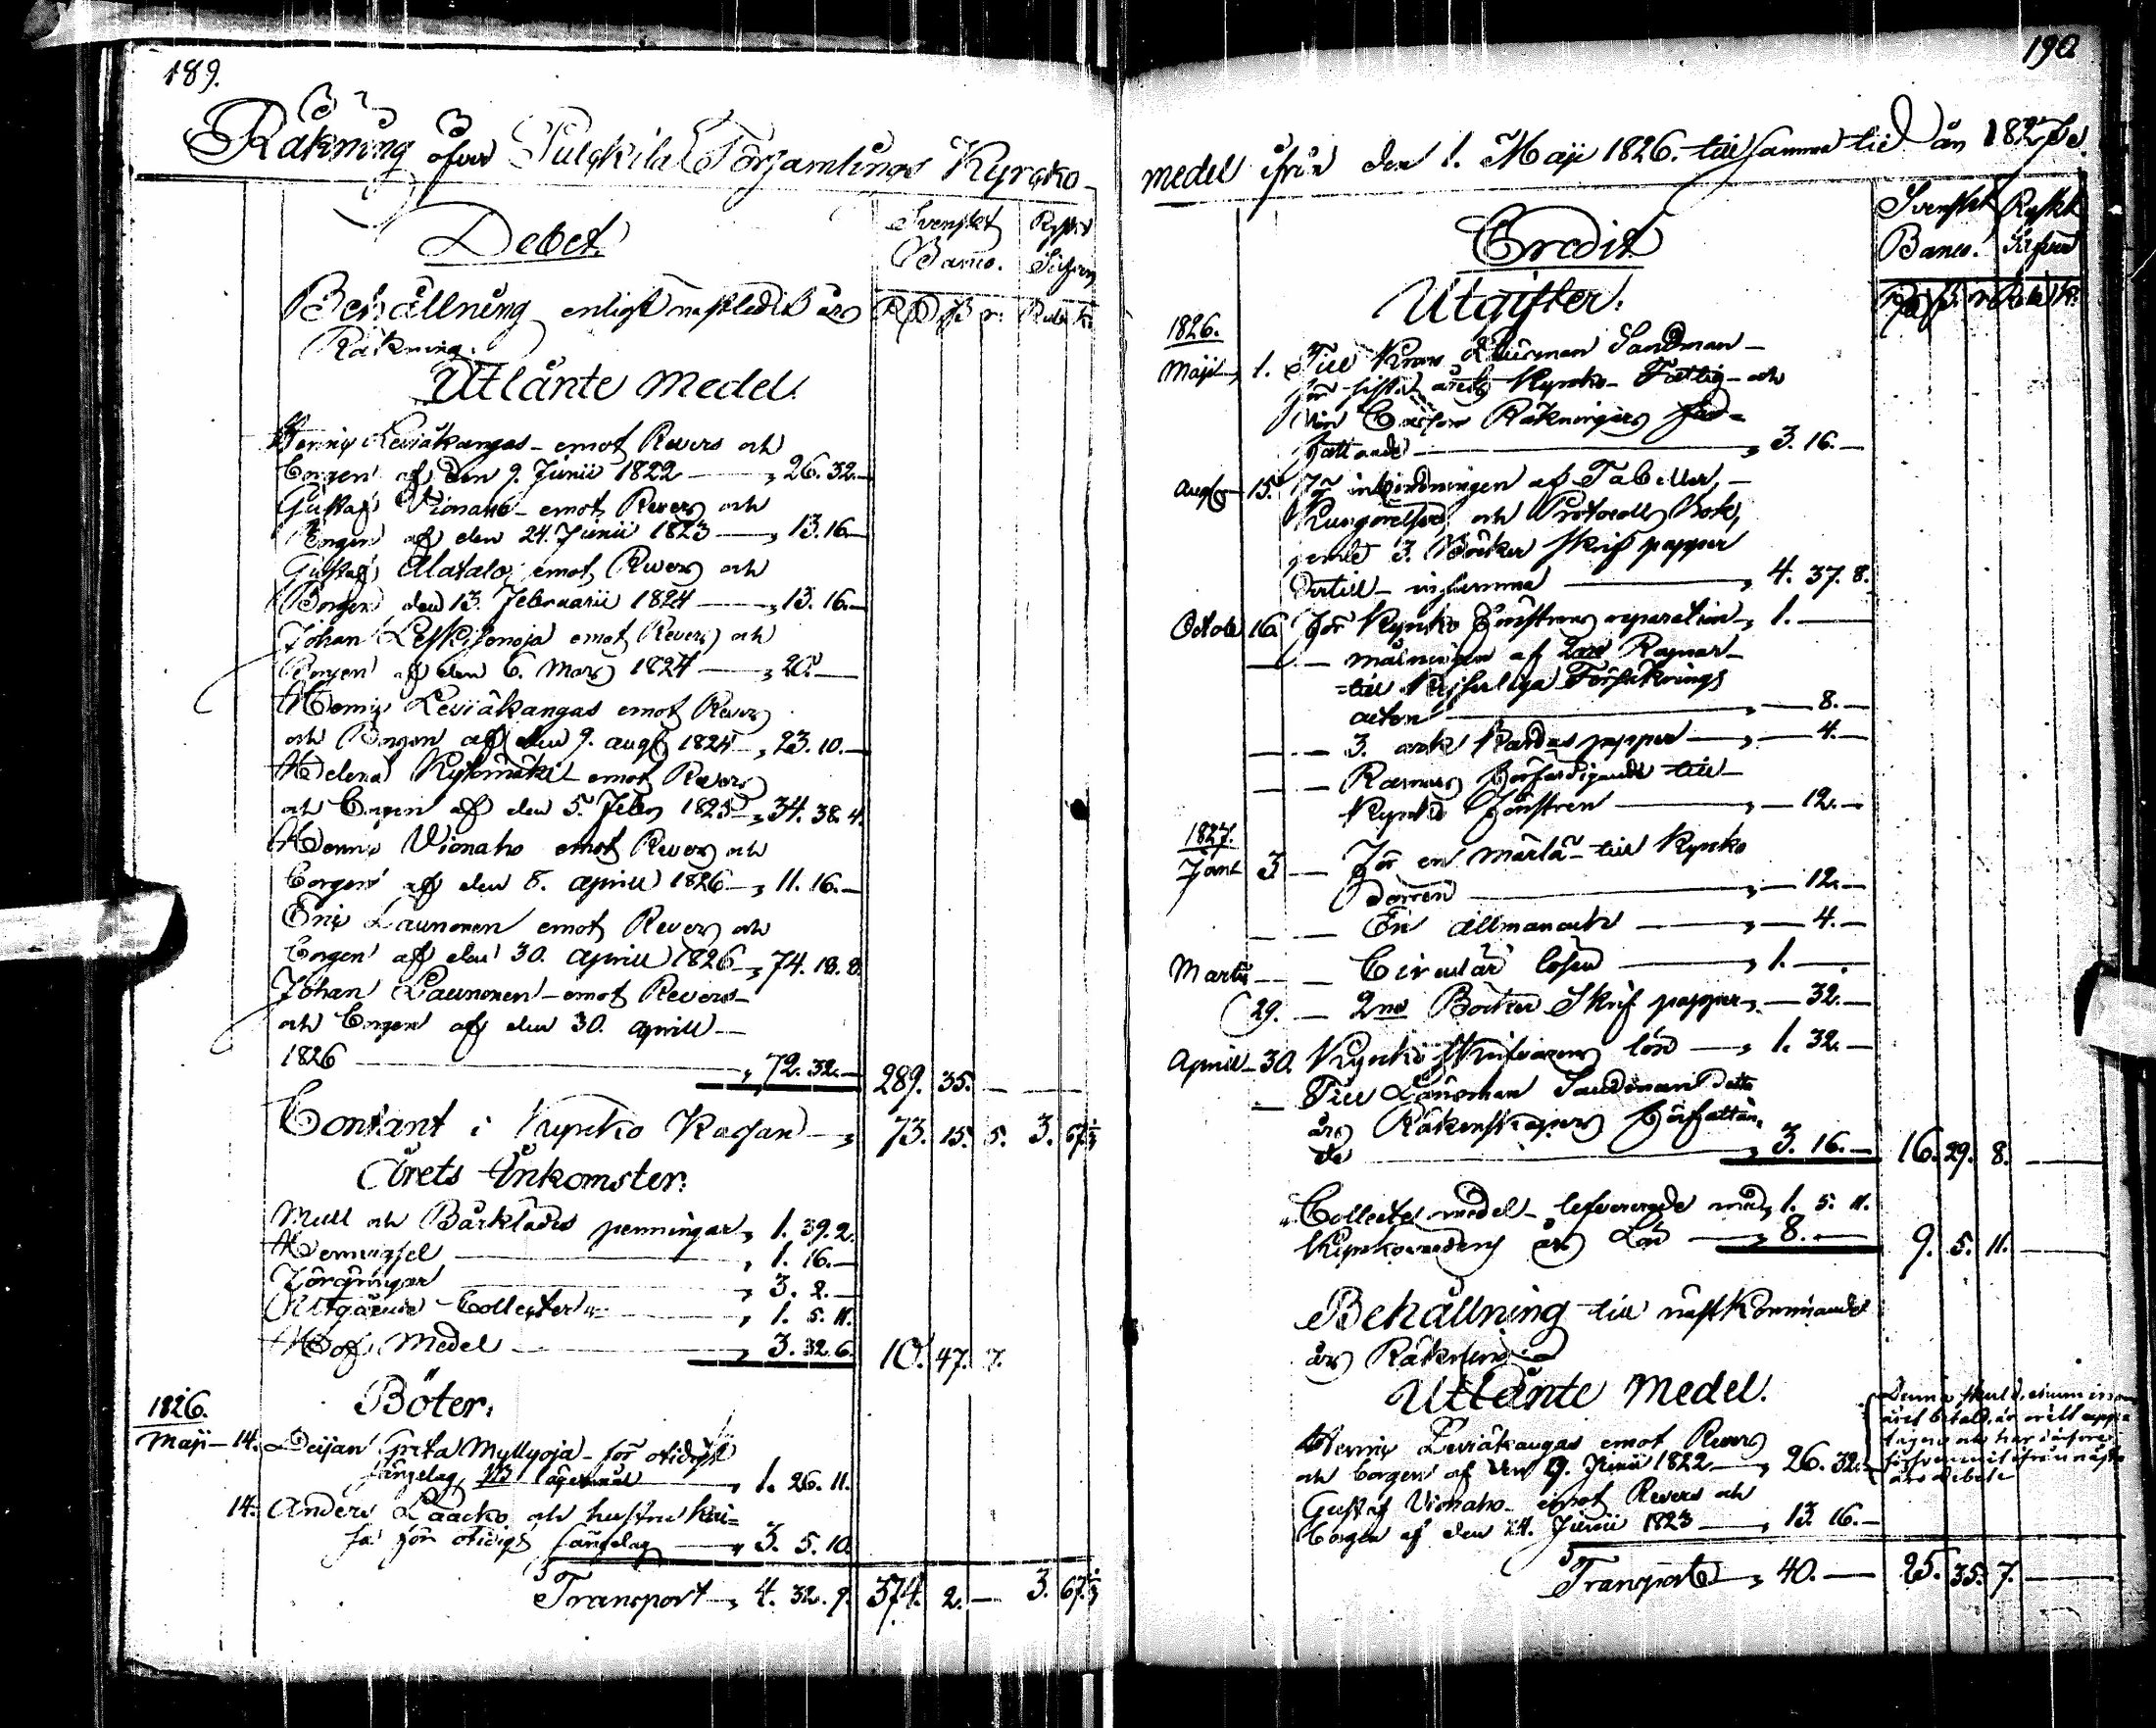 189.
Räkning öfver Pulckila Församlings Kyrcko-
Debet.
Svenskt Banco.
Ryskt Silfver
Behållning enligt nästledit års
Räkning.
RD ß r: Rub. k:
Utlånte Medel.
Henric Leviäkangas emot Revers och
Borgen af den 9. Junii 1822 — 26. 32. —
Gustaf Vionaho emot Revers och
Borgen af den 24. Junii 1823 — 13. 16. —
Gustaf Alatalo emot Revers och
Borgen den 13. Februarii 1824 — 13. 16. —
Johan Leskisenoja emot Revers och
Borgen af den 6. Mars 1824 — 20. —
Henric Leviäkangas emot Revers
och Borgen af den 9. Augt 1824 — 23. 10. —
Helena Kylömäki emot Revers
och Borgen af den 5. Feby 1825 — 34. 38. 4.
Henric Vionaho emot Revers och
Borgen af den 8. Aprill 1826 — 11. 16. —
Eric Launonen emot Revers och
Borgen af den 30. Aprill 1826 — 74. 18. 8.
Johan Launonen emot Revers
och Borgen af den 30. Aprill
1826 — 72. 32. — 289. 35. —
Contant i Kyrcko Kassan — 73. 15. 5. 3. 67
Årets Inkomster.
Mull och Bårklädes penningar 1. 39. 2.
1. 16. —
3. 2. —
Utgående Collecter — 1. 5. 11.
Håf Medel — 3. 32. 6. 10. 47. 7.
1826. Böter.
Maji 14. Greta Myllyoja för otidigt
sängelag 1/3 — 1. 26. 11.
14. Anders Laacko och hustru Kai=
sa för otidigt sängelag — 3. 5. 10.
Transport 4. 32. 9. 374. 2. — 3. 67
190.
medel ifrån den 1. Maji 1826. till samma tid år 1827.
Credit
Svenskt Banco.
Ryskt Silfver
Utgifter.
1826.
Maji 1. Till Länsman Sandman
för sista årets Kyrcko- Fattig- och
Räkningars för=
fattande — 3. 16. —
Aug 15. För inbindningen af Tabeller,
Kungörelser och Protocolls Bok,
jemte 3. Böcker Skrif papper
dertill — 4. 37. 8.
Octob 16. För Kyrko Fönstrens reparation 1. —
— målningen af 2ne Ramar
till Kejserliga Försäkrings
acten — 8. —
— 3. ark Kardus papper — 4. —
— Ramars förfärdigande till
Kyrko Fönstren — 12. —
1827.
Janr 3 — För en märla till Kyrko
Dörren — 12. —
— En Allmanack — 4. —
Martii — Circulär lösen — 1. —
29. — 2ne Böcker Skrif papper — 32. —
April 30. Kyrcko lön — 1. 32. —
— Till Länsman Sandman detta
års Räkenskapers författan=
de — 3. 16. — 16. 29. 8.
Collecte medel lefvererade med 1. 5. 11.
Kyrkowerdens års Lön — 8. — 9. 5. 11.
Behållning till nästkommande
års Räkning
Utlånte Medel.
Henric Leviäkangas emot Revers
och borgen af den 9. Junii 1822 — 26. 32. —
Gustaf Vionaho emot Revers och
Borgen af den 24. Junii 1823 — 13. 16. —
Transport 40. — 25. 35. 7.